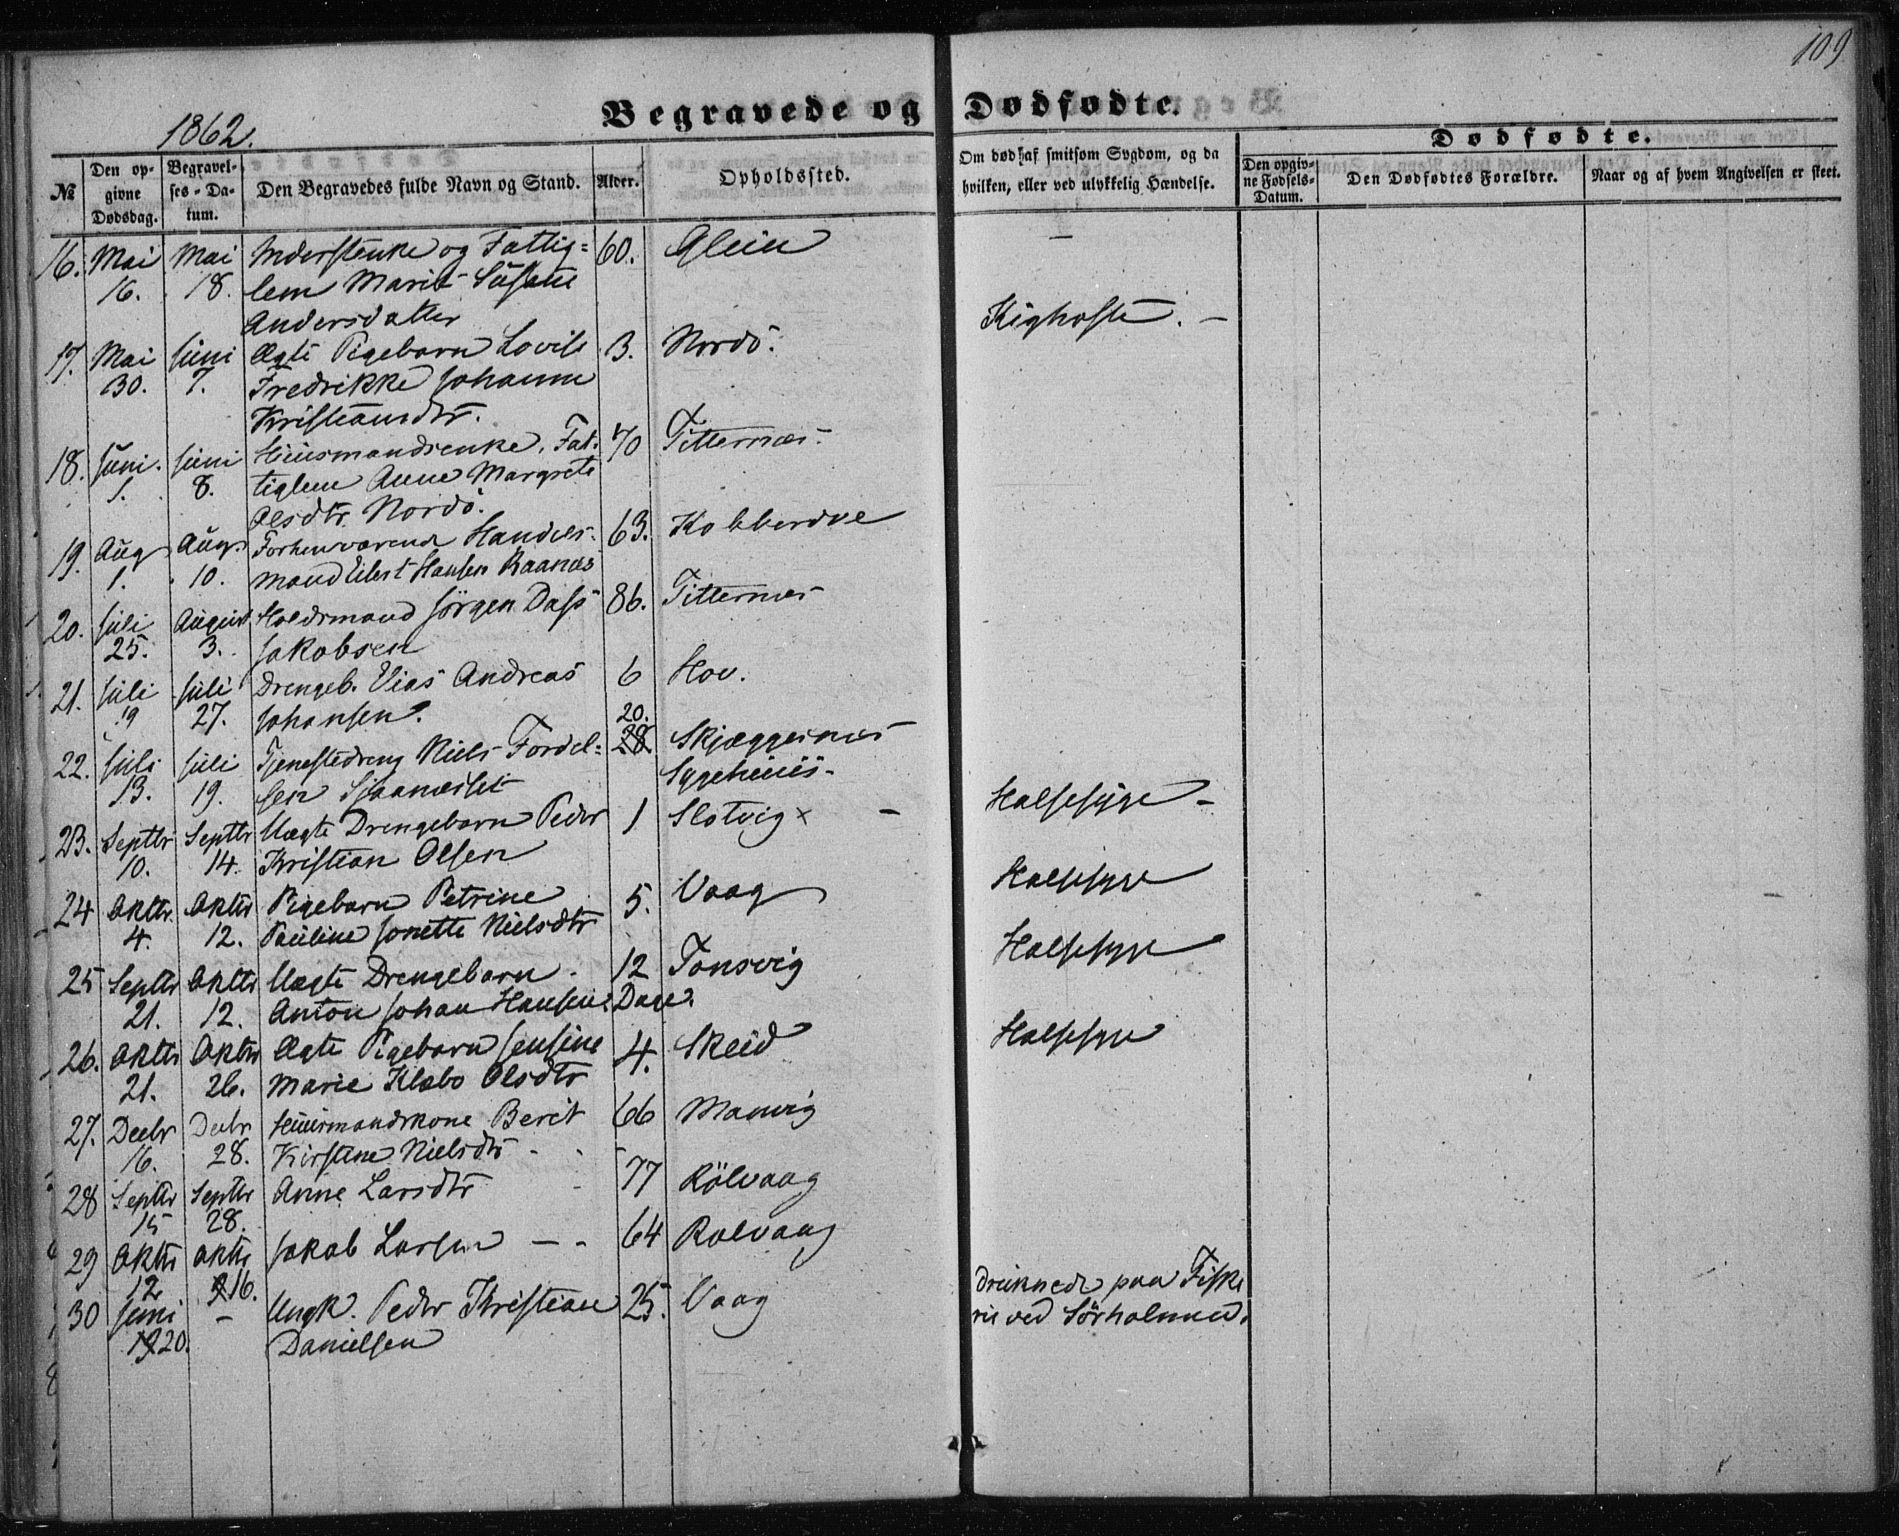 109
1862.
Begravede og Dødfødte.
Dødfødte.
№
Den opgivne Dødsdag.
Begravelses-Datum.
Den Begravedes fulde Navn og Stand.
Alder.
Opholdssted.
Om død af smitsom Sygdom, og da hvilken, eller ved ulykkelig Hændelse.
Den opgivne Fødsels-Datum.
Den Dødfødtes Forældre.
Naar og af hvem Angivelsen er skeet.
16. Mai Mai Inderstenke og Fattig= 60. Glein —
16. 18. lem Marit Susane
Andersdatter
17. Mai Juni Ægte Pigebarn Lovise 3. Nordö. Kighoste. —
30. 7. Fredrikke Johanne
Kristiansdtr.
18. Juni. Juni Huusmandsenke, Fat- 70 Titternæs.
1. 8. tiglem Anne Margrete
Olsdtr Nordö.
19. Aug Aug. Forhenværend Handels- 63. Kobberdve
1. 10. mand Eilert Hansen Raanæs
20. Juli August Holdsmand Jörgen Dass 86. Titternæs
25. 3. Jakobsen
21. Juli Juli Drengeb. Elias Andreas 6 Hov.
19 27. Johansen.
20.
22. Juli Juli Tjenestedreng Niels Fordel= 28 Skjæggesnæs
13. 19. sen Sjaanæsset Sygehuus.
23. Septbr Septbr Uægte Drengebarn Peder 1 Slotvig x — Halsesyge —
10. 14. Kristian Olsen
24 Oktbr. Oktbr Pigebarn Petrine 5. Vaag Halsesyge
4. 12. Pauline Jonette Nielsdtr
25 Septbr Oktbr Uægte Drengebarn 12 Tonsvig Halsesyge
21. 12. Anton Johan Hansen. Dage.
26. Oktbr Oktbr Ægte Pigebarn Jensine 4. Skeid Halsesyge
21. 26. Marie Klæbo Olsdtr
27. Decbr Decbr Huusmandskone Berit 66 Manvig
16. 28. Kirstine Nielsdtr
28 Septbr Septbr Anne Larsdtr 77 Rölvaag
15 28.
29 Oktbr Oktbr Jakob Larsen — - 64 Rolvaag
12 16.
30 Juni — Ungk. Peder Kristian 25. Vaag Druknede paa Fiske
20. Danielsen rie ved Sörholmen.